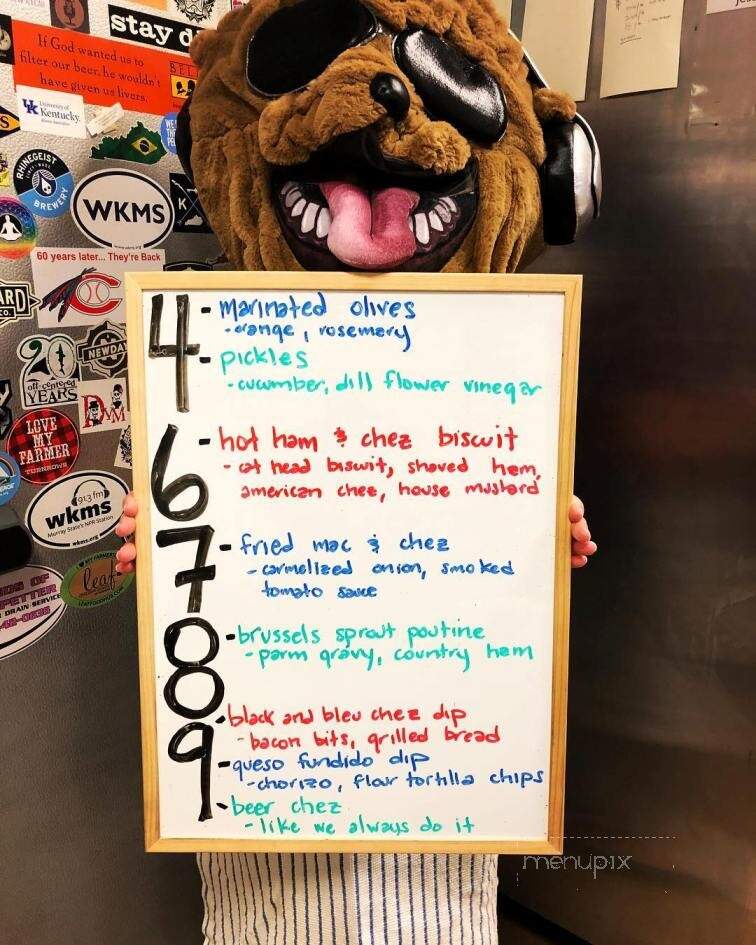 stay d
If God wanted us to
filter our beer, he wouldn't
have given us livers.
BEL
UK University of
Kentucky
RHINEGEIST
BREWERY
WKMS
K
60 years later... They're Back
C
ARD
CO.
20
off-centered
YEARS
NEWDA
DVM
LOVE
MY
FARMER
TURNROWS
91.3 fm
wkms
Murray State's NPR Station
wkms.org
leaf
DRAIN SERVICE
4
- marinated olives
- orange, rosemary
- pickles
- cucumber, dill flower vinegar
6
- hot ham & chez biscuit
- cat head biscuit, shaved ham,
american chez, house mustard
7
- fried mac & chez
- carmelized onion, smoked
tomato sauce
8
- brussels sprout poutine
- parm gravy, country ham
9
- black and bleu chez dip
- bacon bits, grilled bread
- queso fundido dip
- chorizo, flour tortilla chips
- beer chez
- like we always do it
menupix